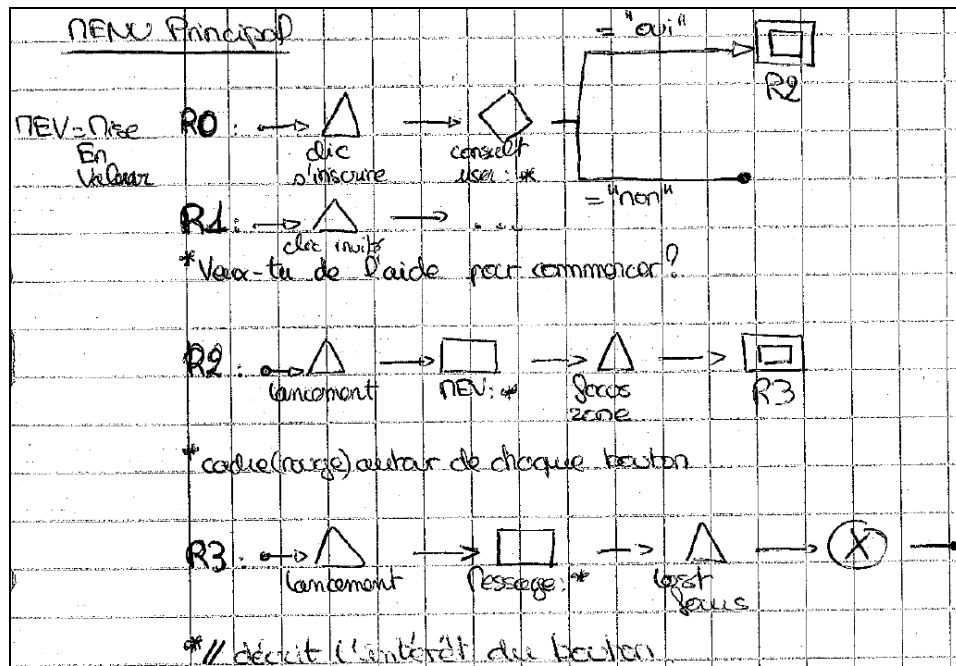 MENU Principal
= "oui"
R2
MEV = Mise
En
Valeur
R0 :
clic
s'inscrire
consult
user : *
= "non"
R1 :
clic invité
...
* Veux-tu de l'aide pour commencer ?
R2 :
lancement
MEV : *
focus
zone
R3
* cadre (rouge) autour de chaque bouton
R3 :
lancement
Message : *
lost
focus
X
* // décrit l'intérêt du bouton